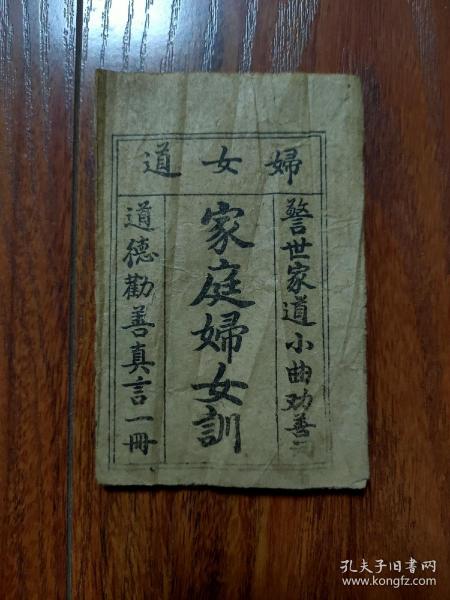 婦女道
警世家道小曲劝善
家庭婦女訓
道德勸善真言一冊
孔夫子旧书网
www.kongfz.com